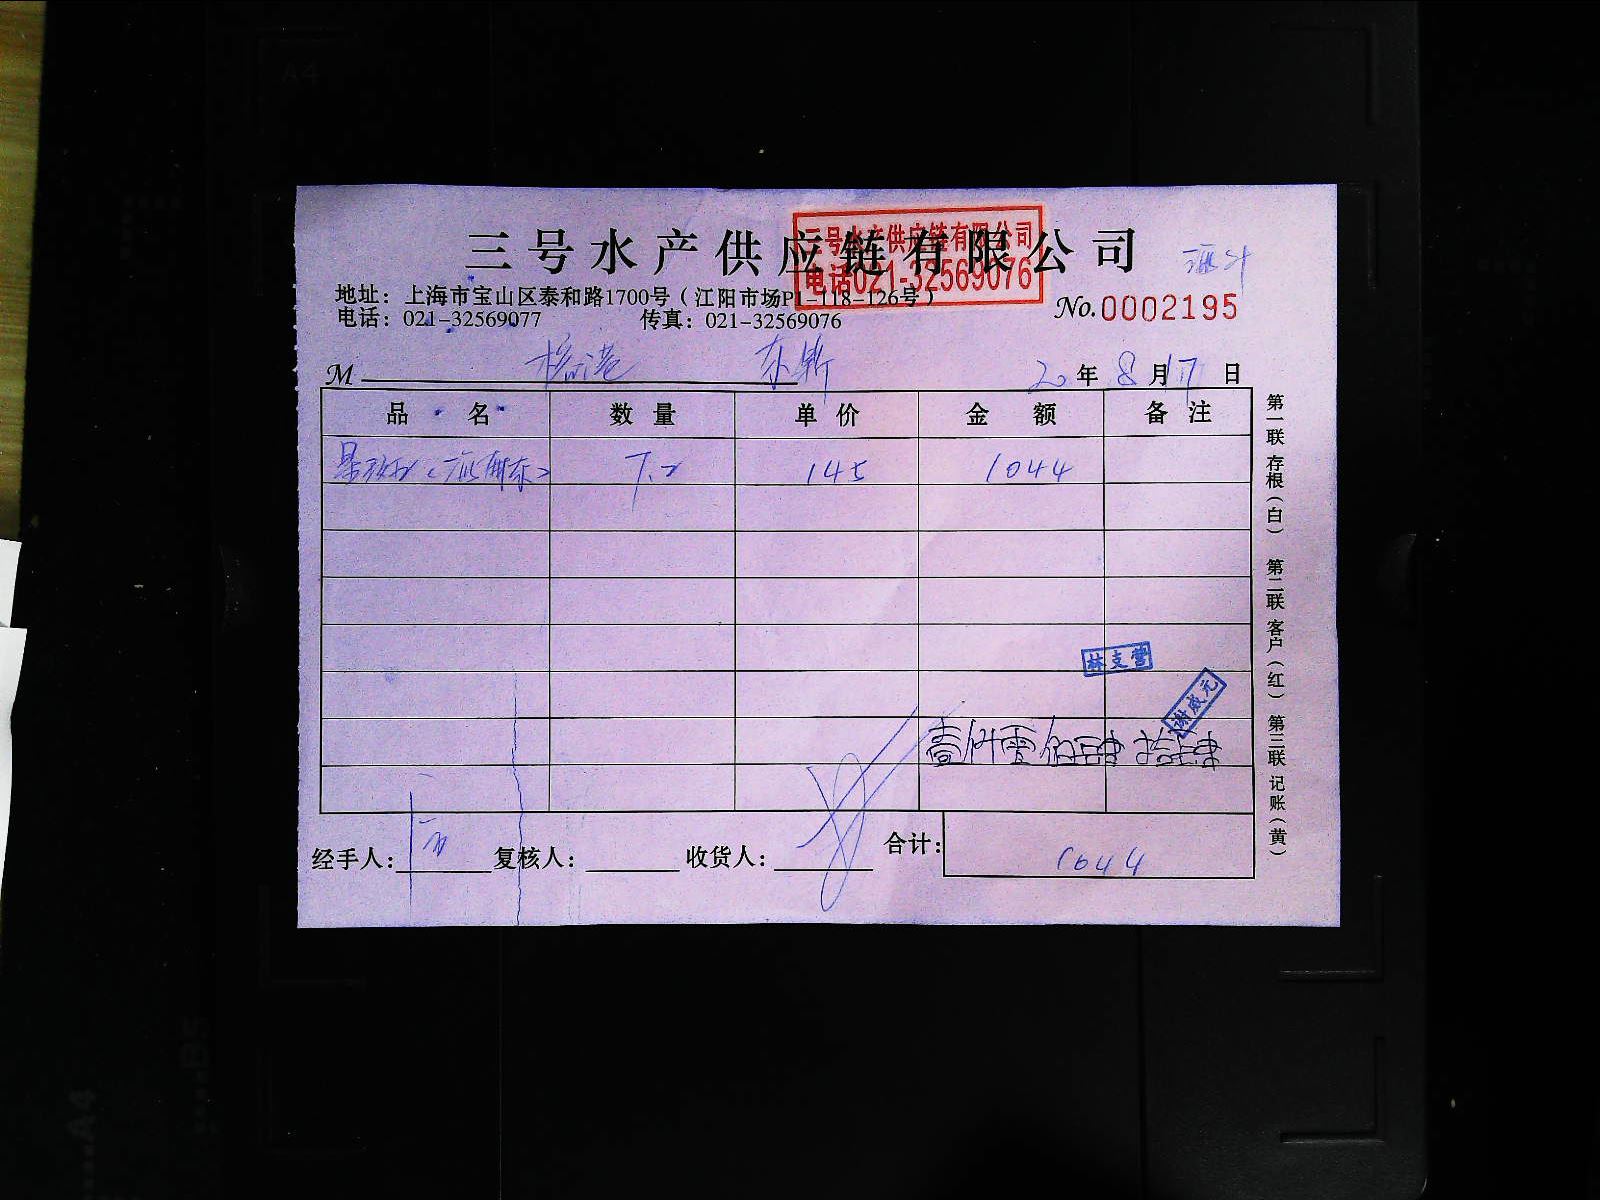 三号水产供应链有限公司
三号水产供应链有限公司
电话021-32569076
地址：上海市宝山区泰和路1700号（江阳市场P1-118-126号）
电话：021-32569077 传真：021-32569076
No.0002195
M
20年8月17日
品名 数量 单价 金额 备注
7.2 145 1044
林支营
谢成元
壹仟零佰肆拾肆
经手人： 复核人： 收货人： 合计： 1044
第一联 存根（白） 第二联 客户（红） 第三联 记账（黄）